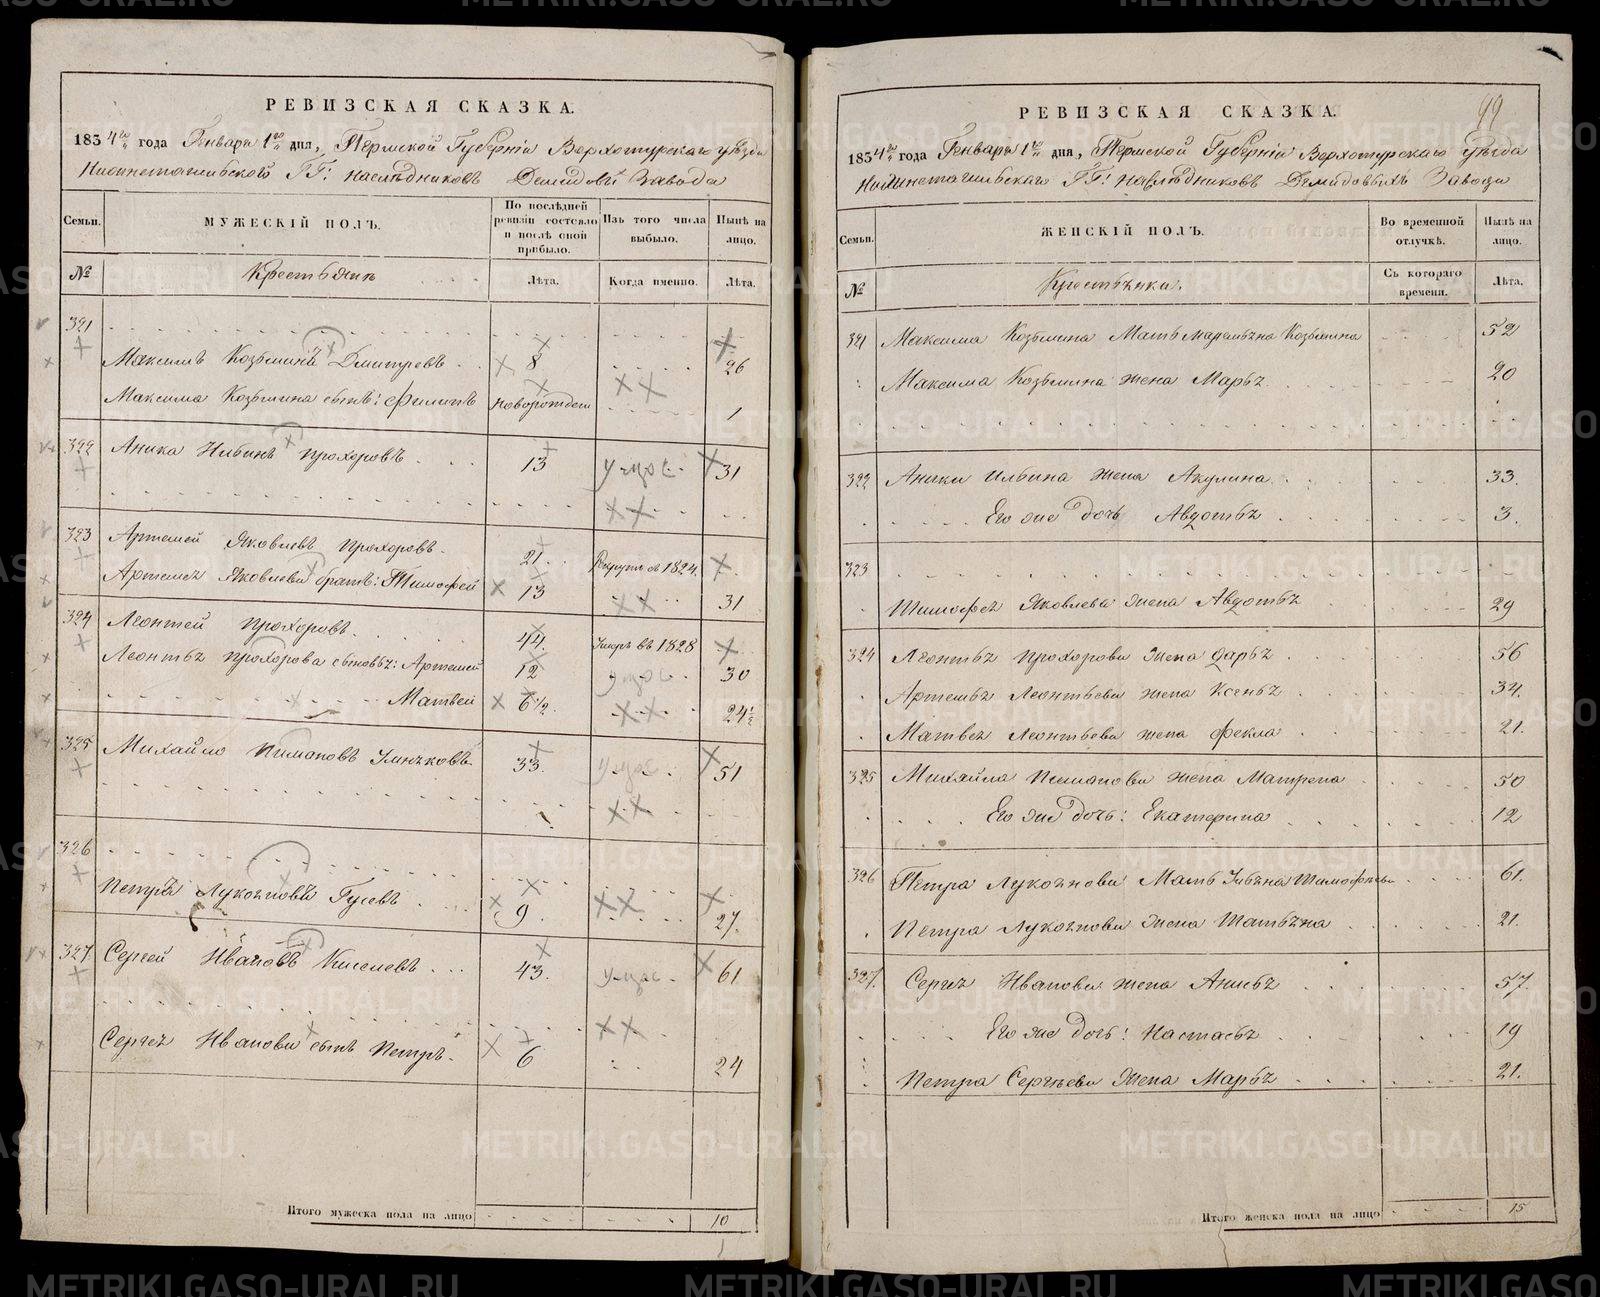 РЕВИЗСКАЯ СКАЗКА.
1834го года Генваря 1го дня, Пермской Губерніи Верхотурскаго уѣзда
Нижнетагильскаго ГГ: наслѣдниковъ Демидовыхъ Завода
Семьи.
МУЖЕСКІЙ ПОЛЪ.
По послѣдней ревизіи состояло и послѣ оной прибыло.
Изъ того числа выбыло.
Нынѣ на лицо.
№
Крестьяне
Лѣта.
Когда именно.
Лѣта.
321
Максимъ Козьминъ Дмитревъ 8 26
Максима Козьмина сынъ: Филипъ новорожден 1
322 Аника Ильинъ Прохоровъ 13 31
323 Артемей Яковлевъ Прохоровъ. 21 Рекрутъ съ 1824.
Артемея Яковлева братъ: Тимофей 13 31
324 Леонтей Прохоровъ 44. Умре въ 1828
Леонтья Прохорова сыновья: Артемей 12 30
Матвей 6½. 24½
325 Михайло Пимоновъ 33. 51
326
Петръ Лукояновъ Гусевъ 9. 27.
327. Сергей Ивановъ Киселевъ 43. 61
Сергея Иванова сынъ Петръ. 6 24
Итого мужеска пола на лицо 10
99
РЕВИЗСКАЯ СКАЗКА.
1834го года Генваря 1го дня, Пермской Губерніи Верхотурскаго уѣзда
Нижнетагильскаго ГГ: наслѣдниковъ Демидовыхъ Завода
Семьи.
ЖЕНСКІЙ ПОЛЪ.
Во временной отлучкѣ.
Нынѣ на лицо.
№
Крестьянки.
Съ котораго времени.
Лѣта.
321 Максима Козьмина Мать Козьмина 52
Максима Козьмина жена Марья 20
322 Аники Ильина жена Акулина 33.
Его же дочь Авдотья 3.
323
Тимофея Яковлева жена Авдотья 29
324 Леонтья Прохорова жена Дарья 56
Артемья Леонтьева жена Ксенья 34.
Матвея Леонтьева жена Фекла 21.
325 Михайла Пимонова жена Матрена 50
Его же дочь: Екатерина 12
326 Петра Лукоянова Мать Ульяна Тимофѣева 61.
Петра Лукоянова жена Татьяна 21.
327. Сергея Иванова жена Анисья 57.
Его же дочь: Настасья 19
Петра Сергѣева жена Марья 21.
Итого женска пола на лицо 15
METRIKI.GASO-URAL.RU